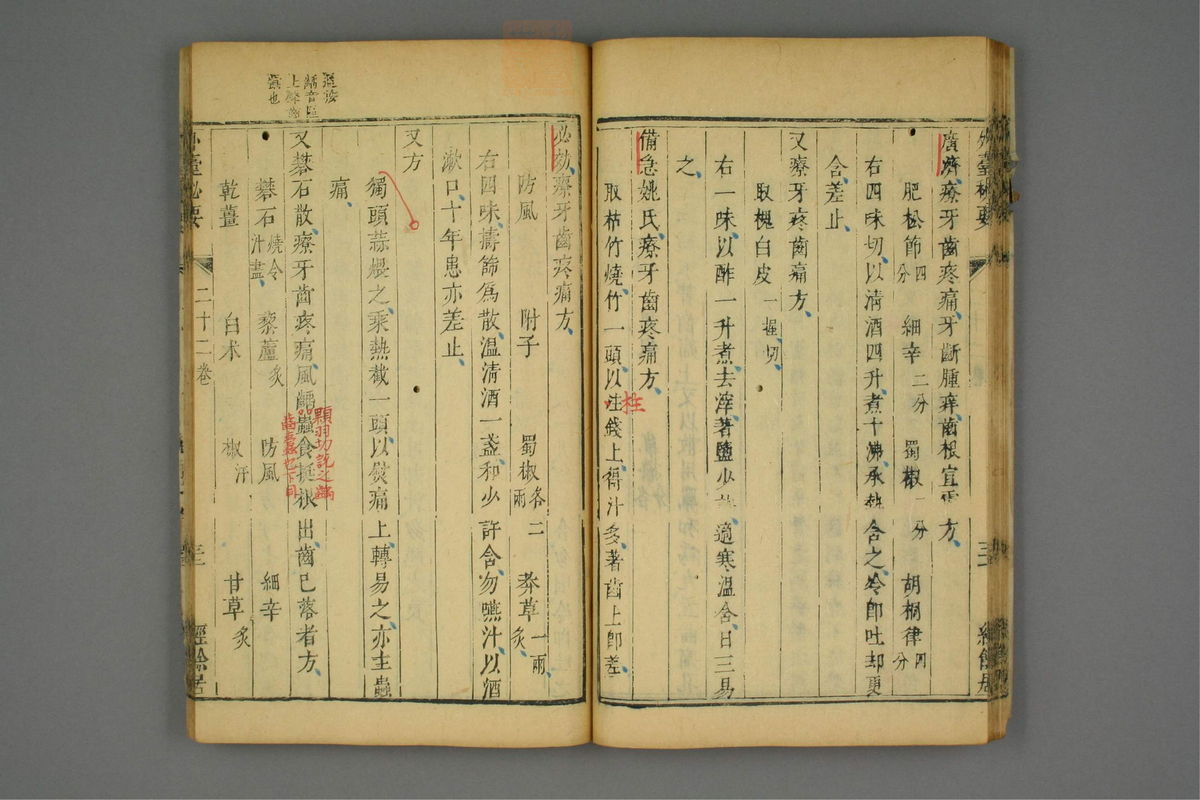 廣濟療牙齒疼痛牙齗腫痒齒根宣露方
肥松節四分 細辛二分 蜀椒一分 胡桐律四分
右四味切以清酒四升煮十沸承熱含之冷即吐却更
含差止
又療牙疼齒痛方
取槐白皮一握切
右一味以酢一升煮去滓著鹽少許適寒溫含日三易
之
備急姚氏療牙齒疼痛方
取枯竹燒竹一頭以注錢上得汁多著齒上即差
拄
必効療牙齒疼痛方
防風 附子 蜀椒各二兩 莽草一兩炙
右四味擣篩為散溫清酒一盞和少許含勿嚥汁以酒
漱口十年患亦差止
又方
獨頭蒜煨之乘熱截一頭以熨痛上轉易之亦主蟲
痛
又礬石散療牙齒疼痛風齲蟲食挺根出齒已落者方
礬石燒令汁盡 藜蘆炙 防風 細辛
乾薑 白朮 椒汗 甘草炙
二十二卷
經餘居